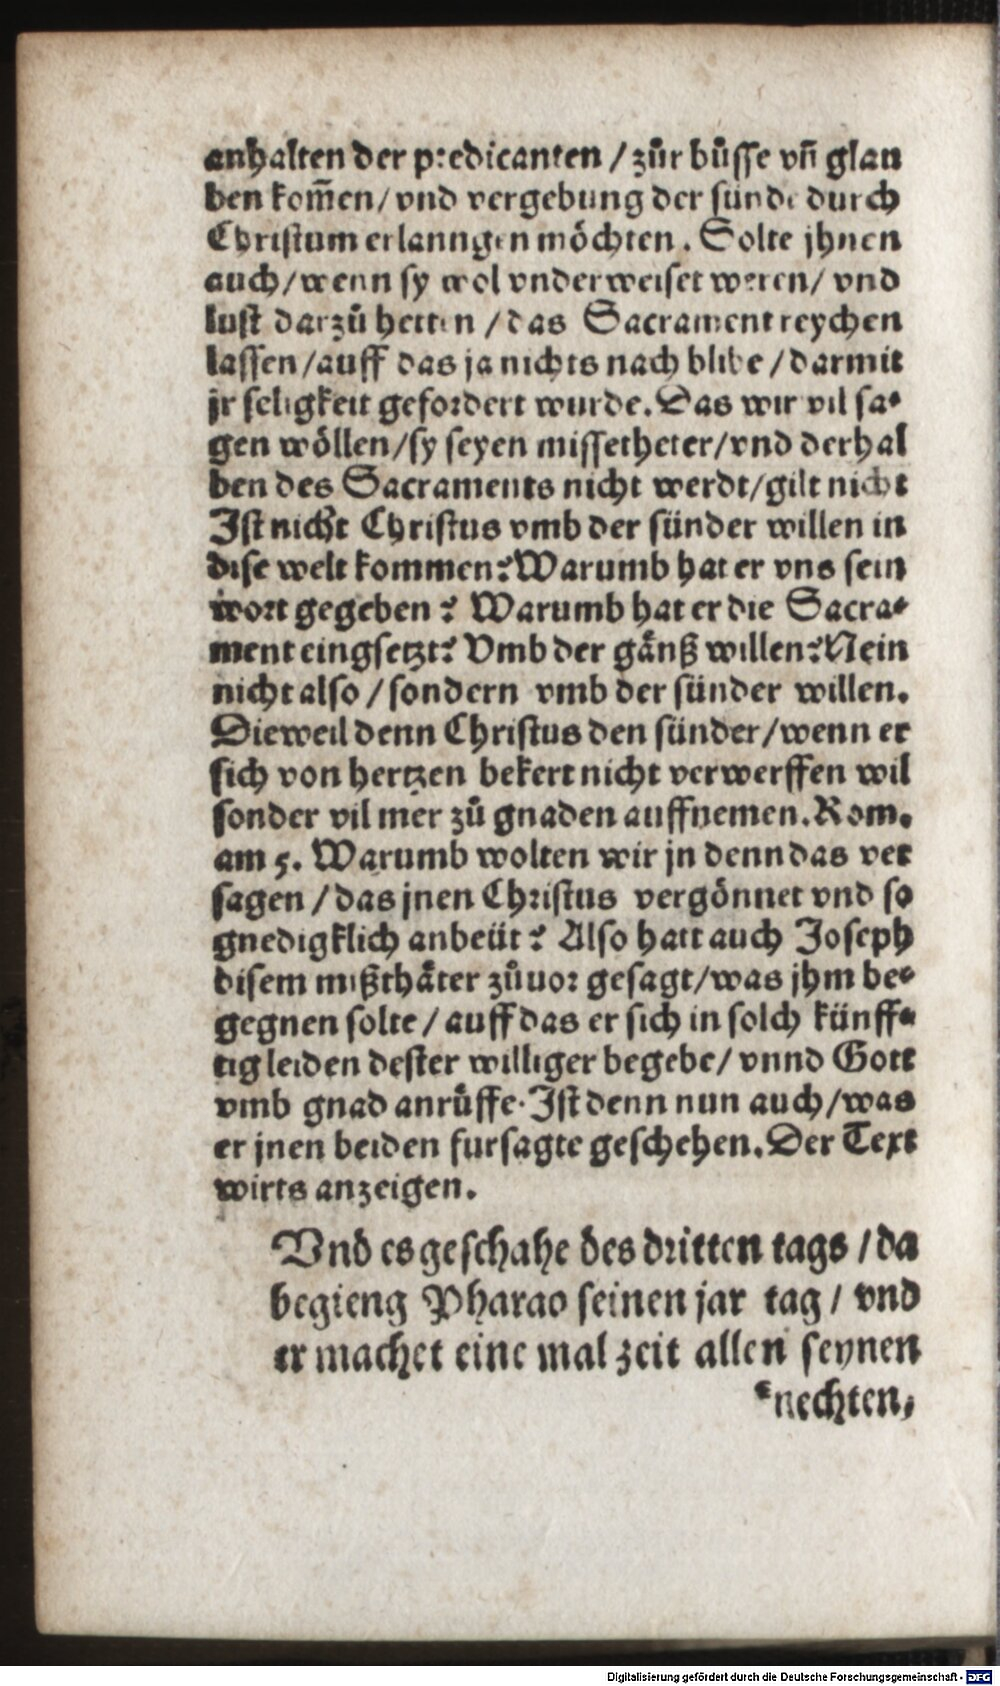 anhalten der predicanten / zůr bůsse vñ glau
ben kom̃en / vnd vergebung der sünde durch
Christum erlanngen möchten . Solte jhnen
auch / wenn sy wol vnderweiset weren / vnd
lust darzů hetten / das Sacrament reychen
lassen / auff das ja nichts nach blibe / darmit
jr seligkeit gefordert wurde. Das wir vil sa⸗
gen wöllen / sy seyen missetheter / vnd derhal
ben des Sacraments nicht werdt / gilt nicht
Ist nicht Christus vmb der sünder willen in
dise welt kommen? Warumb hat er vns sein
wort gegeben ? Warumb hat er die Sacra⸗
ment eingsetzt? Vmb der gänß willen? Nein
nicht also / sondern vmb der sünder willen.
Dieweil denn Christus den sünder / wenn er
sich von hertzen bekert nicht verwerffen wil
sonder vil mer zů gnaden auffnemen. Rom.
am 5. Warumb wolten wir jn denn das ver
sagen / das jnen Christus vergönnet vnd so
gnedigklich anbeüt ? Also hatt auch Joseph
disem mißthäter zůuor gesagt / was jhm be⸗
gegnen solte / auff das er sich in solch künff⸗
tig leiden dester williger begebe / vnnd Gott
vmb gnad anrůffe. Ist denn nun auch / was
er jnen beiden fursagte geschehen. Der Text
wirts anzeigen.
Vnd es geschahe des dritten tags / da
begieng Pharao seinen jar tag / vnd
er machet eine mal zeit allen seynen
knechten,
Digitalisierung gefördert durch die Deutsche Forschungsgemeinschaft - DFG